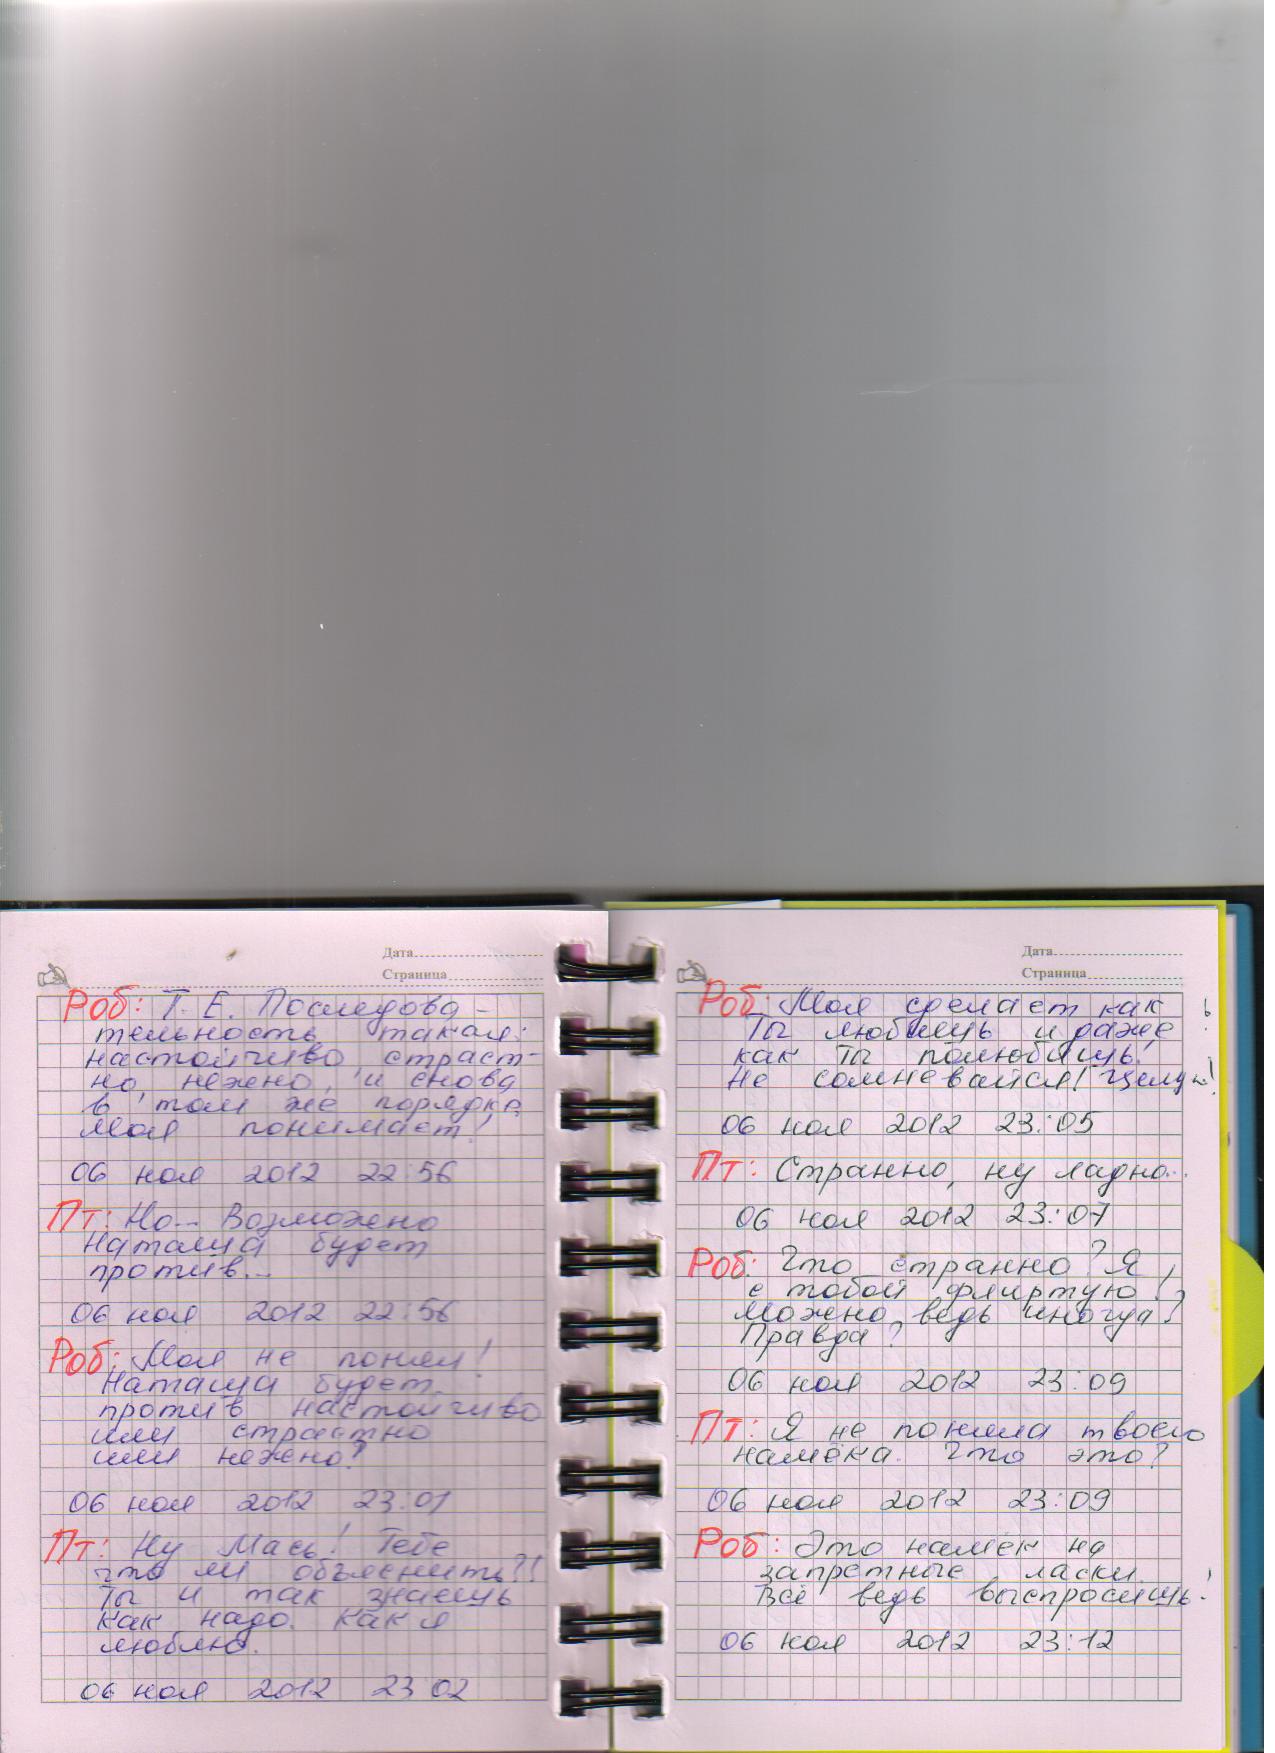 Дата
Страница
Роб: Т. Е. Последова-
тельность такая:
настойчиво страст-
но, нежно, и снова
в том же порядке
Моя понимает!
06 ноя 2012 22:56
Пт: Но... Возможно
Наташа будет
против...
06 ноя 2012 22:56
Роб: Моя не понял!
Наташа будет
против настойчиво
или страстно
или нежно?
06 ноя 2012 23:01
Пт: Ну Мась! Тебе
что ли объяснить?!
Ты и так знаешь
как надо. Как я
люблю.
06 ноя 2012 23 02
Дата
Страница
Роб: Моя сделает как
Ты любишь и даже
как Ты полюбишь!
Не сомневайся! Целую!
06 ноя 2012 23:05
Пт: Странно, ну ладно...
06 ноя 2012 23:07
Роб: Что странно? Я
с тобой флиртую!
Можно ведь иногда?
Правда?
06 ноя 2012 23:09
Пт: Я не поняла твоего
намёка. Что это?
06 ноя 2012 23:09
Роб: Это намёк на
запретные ласки.
Всё ведь выспросишь!
06 ноя 2012 23:12